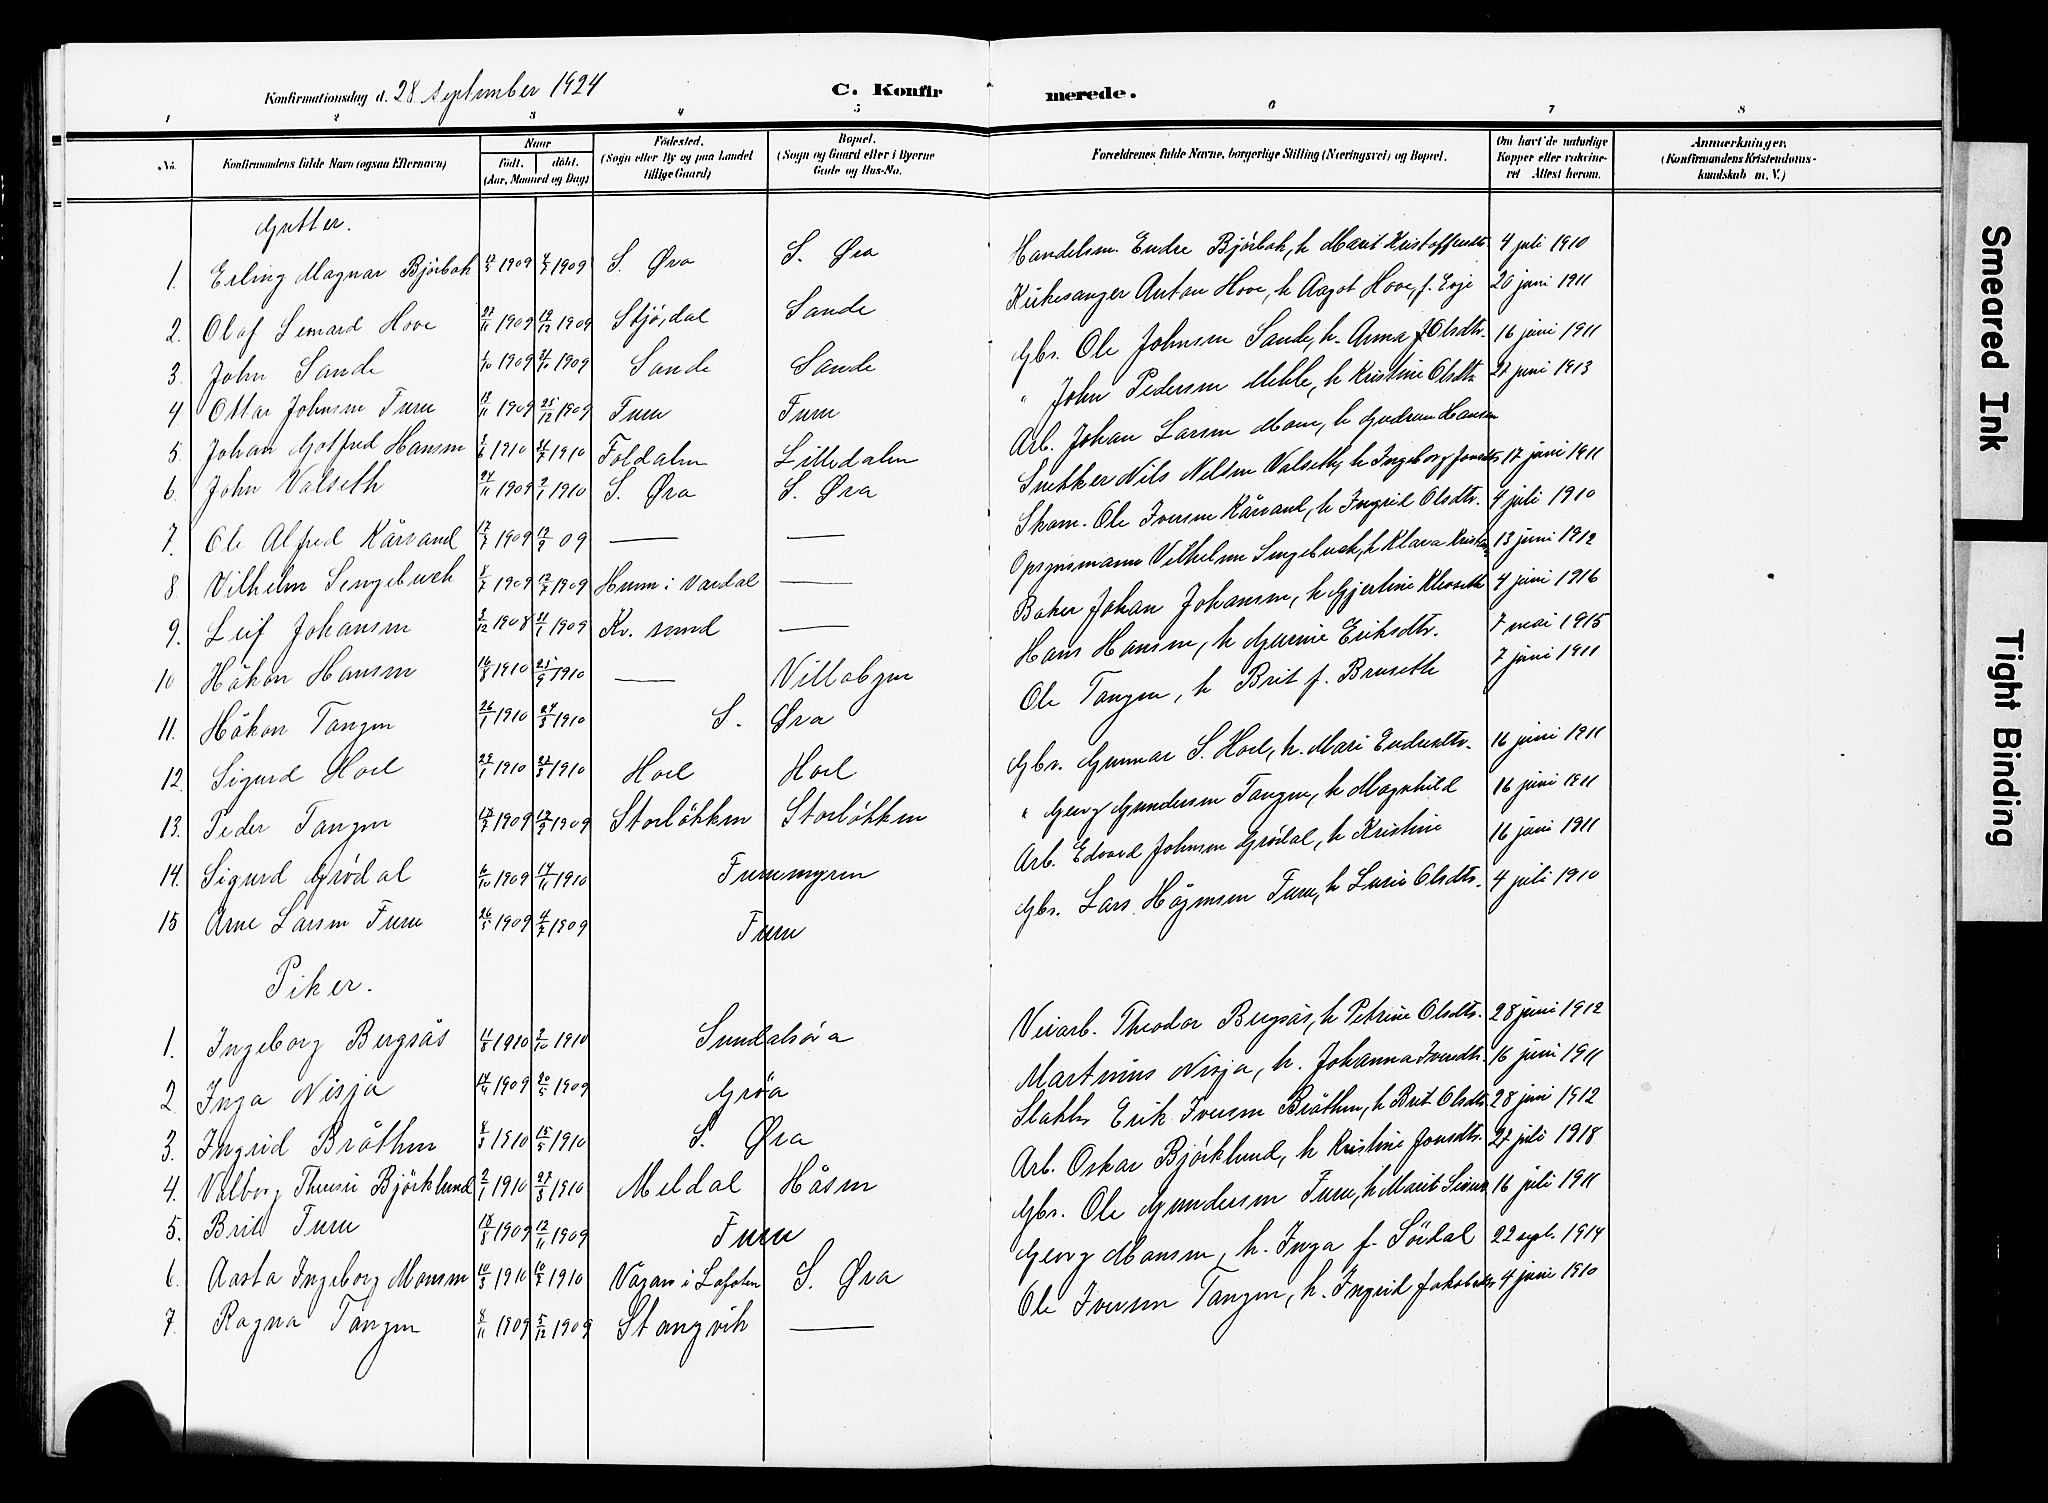 Konfirmationsdag d. 28 september 1924
C. Konfirmerede.
1 2 3 4 5 6 7 8
No. Konfirmandens fulde Navn (ogsaa Efternavn) Naar født. døbt. (Aar, Maaned og Dag) Fødested. (Sogn eller By og paa Landet tillige Gaard) Bopæl. (Sogn og Gaard eller i Byerne Gade og Hus-No. Forældrenes fulde Navne, borgerlige Stilling (Næringsvei) og Bopæl. Om havt de naturlige Kopper eller vaksineret Attest herom. Anmærkninger. (Konfirmandens Kristendomskundskab m. V.)
Gutter.
1. Erling Magnar Bjørbak 1909 1909 S. Øra S. Øra Handelsm. Endre Bjørbak, h Marit Kristoffersdt. 4 juli 1910
2. Olaf Lenard Hove 1909 19/12 1909 Stjørdal Sande Kirkesanger Anton Hove, h Aagot Hove, f. Evje 20 juni 1911
3. John Sande 1909 1909 Sande Sande Gbr. Ole Johnsen Sande, h. Anna Olsdtr. 16 juni 1911
4 Ottar Johnsen Furu 1909 25/12 1909 Furu Furu " John Pedersen h Kristine Olsdtr 1913
5. Johan Gotfred Hansen 1910 1910 Foldalen Lilledalen Arb. Johan Larsen Moen, h Gudrun Hansen
6. John Valseth 24/11 1909 2/1 1910 S. Øra S. Øra Snekker Nils Nilsen Valseth, h Ingeborg Jonsdtr 17 juni 1911
7. Ole Alfred Kårvand 1909 12/9 09 — — Skom. Ole Iversen Kårvand, h Ingrid Olsdtr. 4 juli 1910
8. Vilhelm Sengebusch 1909 1909 Hunn i Vardal — Opsynsmann Vilhelm Sengebusch, h Klara 13 juni 1912
9. Leif Johansen 1908 1909 Kr. sund — Baker Johan Johansen, h Gjertine Kleiseth 4 juni 1916
10 Håkon Hansen 1910 25/9 1910 — Villabyen Hans Hansen, h Gurine Eriksdtr. 7 mai 1915
11. Håkon Tangen 26/1 1910 24/3 1910 S. Øra Ole Tangen, h Brit f. Bruseth 7 juni 1911
12. Sigurd Hoel 1910 1910 Hoel Hoel Gbr. Gunnar S. Hoel, h. Mari Endresdtr. 16 juni 1911
13. Peder Tangen 1909 1909 Storløkken Storløkken " Georg Gundersen Tangen, h Magnhild 16 juni 1911
14. Sigurd Grødal 1909 14/11 1910 Furumyren Arb. Edvard Johnsen Grødal, h Kristine 16 juni 1911
15 Arne Larsen Furu 26/5 1909 4/7 1909 Furu Gbr. Lars Hågensen Furu, h Lusie Olsdtr. 4 juli 1910
Piker.
1. Ingeborg Bergsås 1910 2/10 1910 Sundalsøra Veiarb. Theodor Bergsås, h Petrine Olsdtr. 28 juni 1912
2 Inga Nisja 14/4 1909 20/5 1909 Grøa Martinus Nisja, h. Johanna Iversdtr. 16 juni 1911
3. Ingrid Bråthen 1910 15/5 1910 S. Øra Slakter Erik Iversen Bråthen, h Brit Olsdtr 28 juni 1912
4. Valborg Björklund 2/1 1910 27/3 1910 Meldal Håsen Arb. Oskar Björklund, h Kristine Jonsdtr. 27 juli 1918
5. Brit Furu 1909 12/11 1909 Furu Gbr. Ole Gundersen Furu, h Marit 16 juli 1911
6. Aasta Ingeborg Monsen 10/3 1910 1910 Vågan i Lofoten S. Øra Georg Monsen, h. Inga f. Sördal 22 sept. 1914
7. Ragna Tangen 8/11 1909 5/12 1909 Stangvik — Ole Iversen Tangen, h. Ingrid Jakobsdtr 4 juni 1910
Smeared Ink
Tight Binding